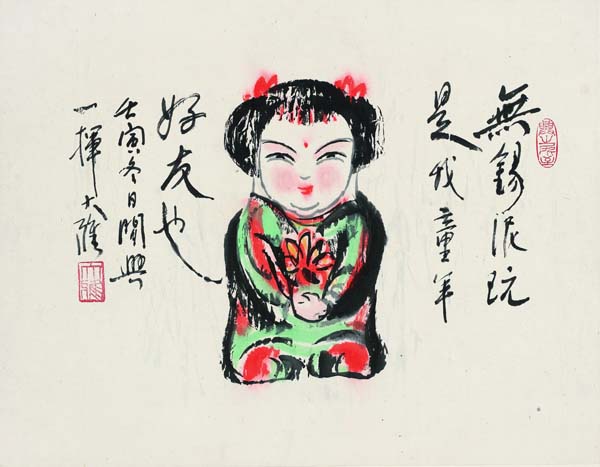 無錫泥玩
是我童年
好友也
壬寅冬日閒興
一揮大維